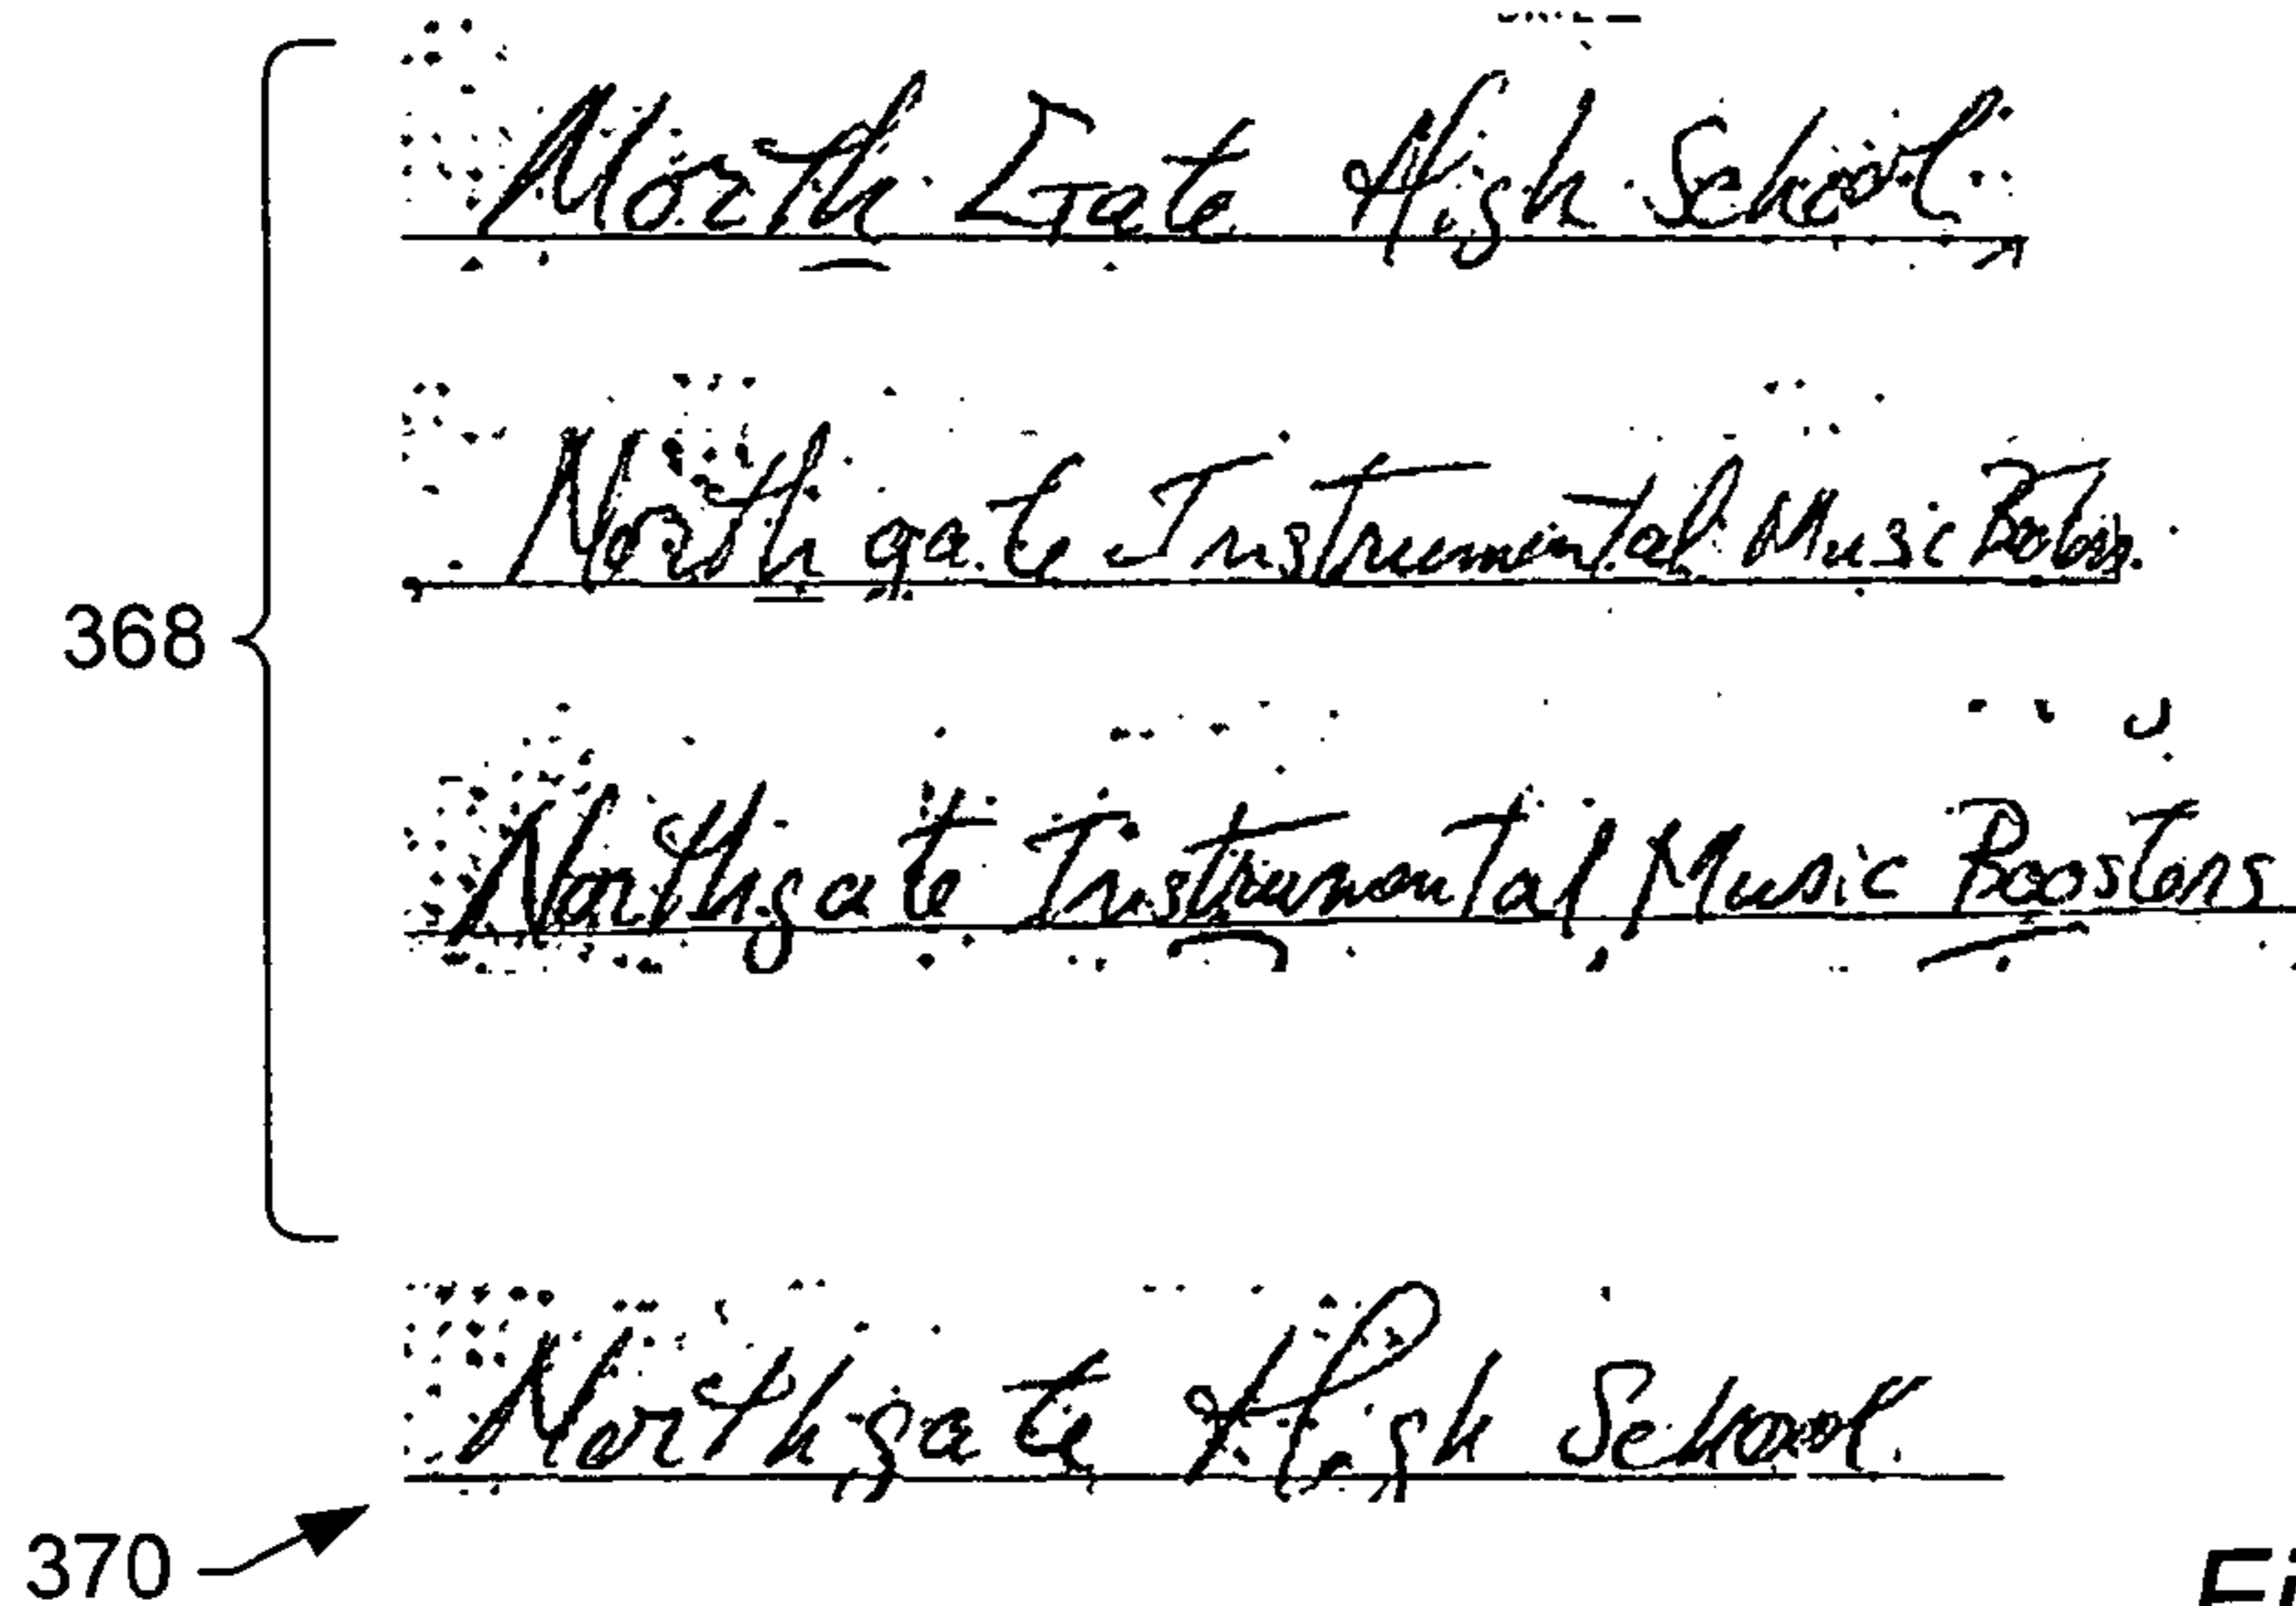 North Gate High School
368
North gate Instrumental Music
Northgate Instrumental Music Boosters
Northgate High School
370
Fi